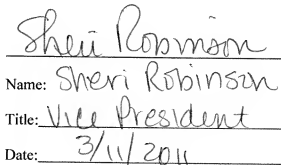 Sheri Robinson
Name: Sheri Robinson
Title: Vice President
Date: 3/11/2011